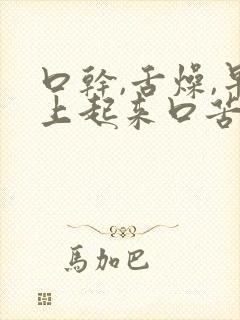 口幹,舌燥,早
上起来口苦
馬加巴